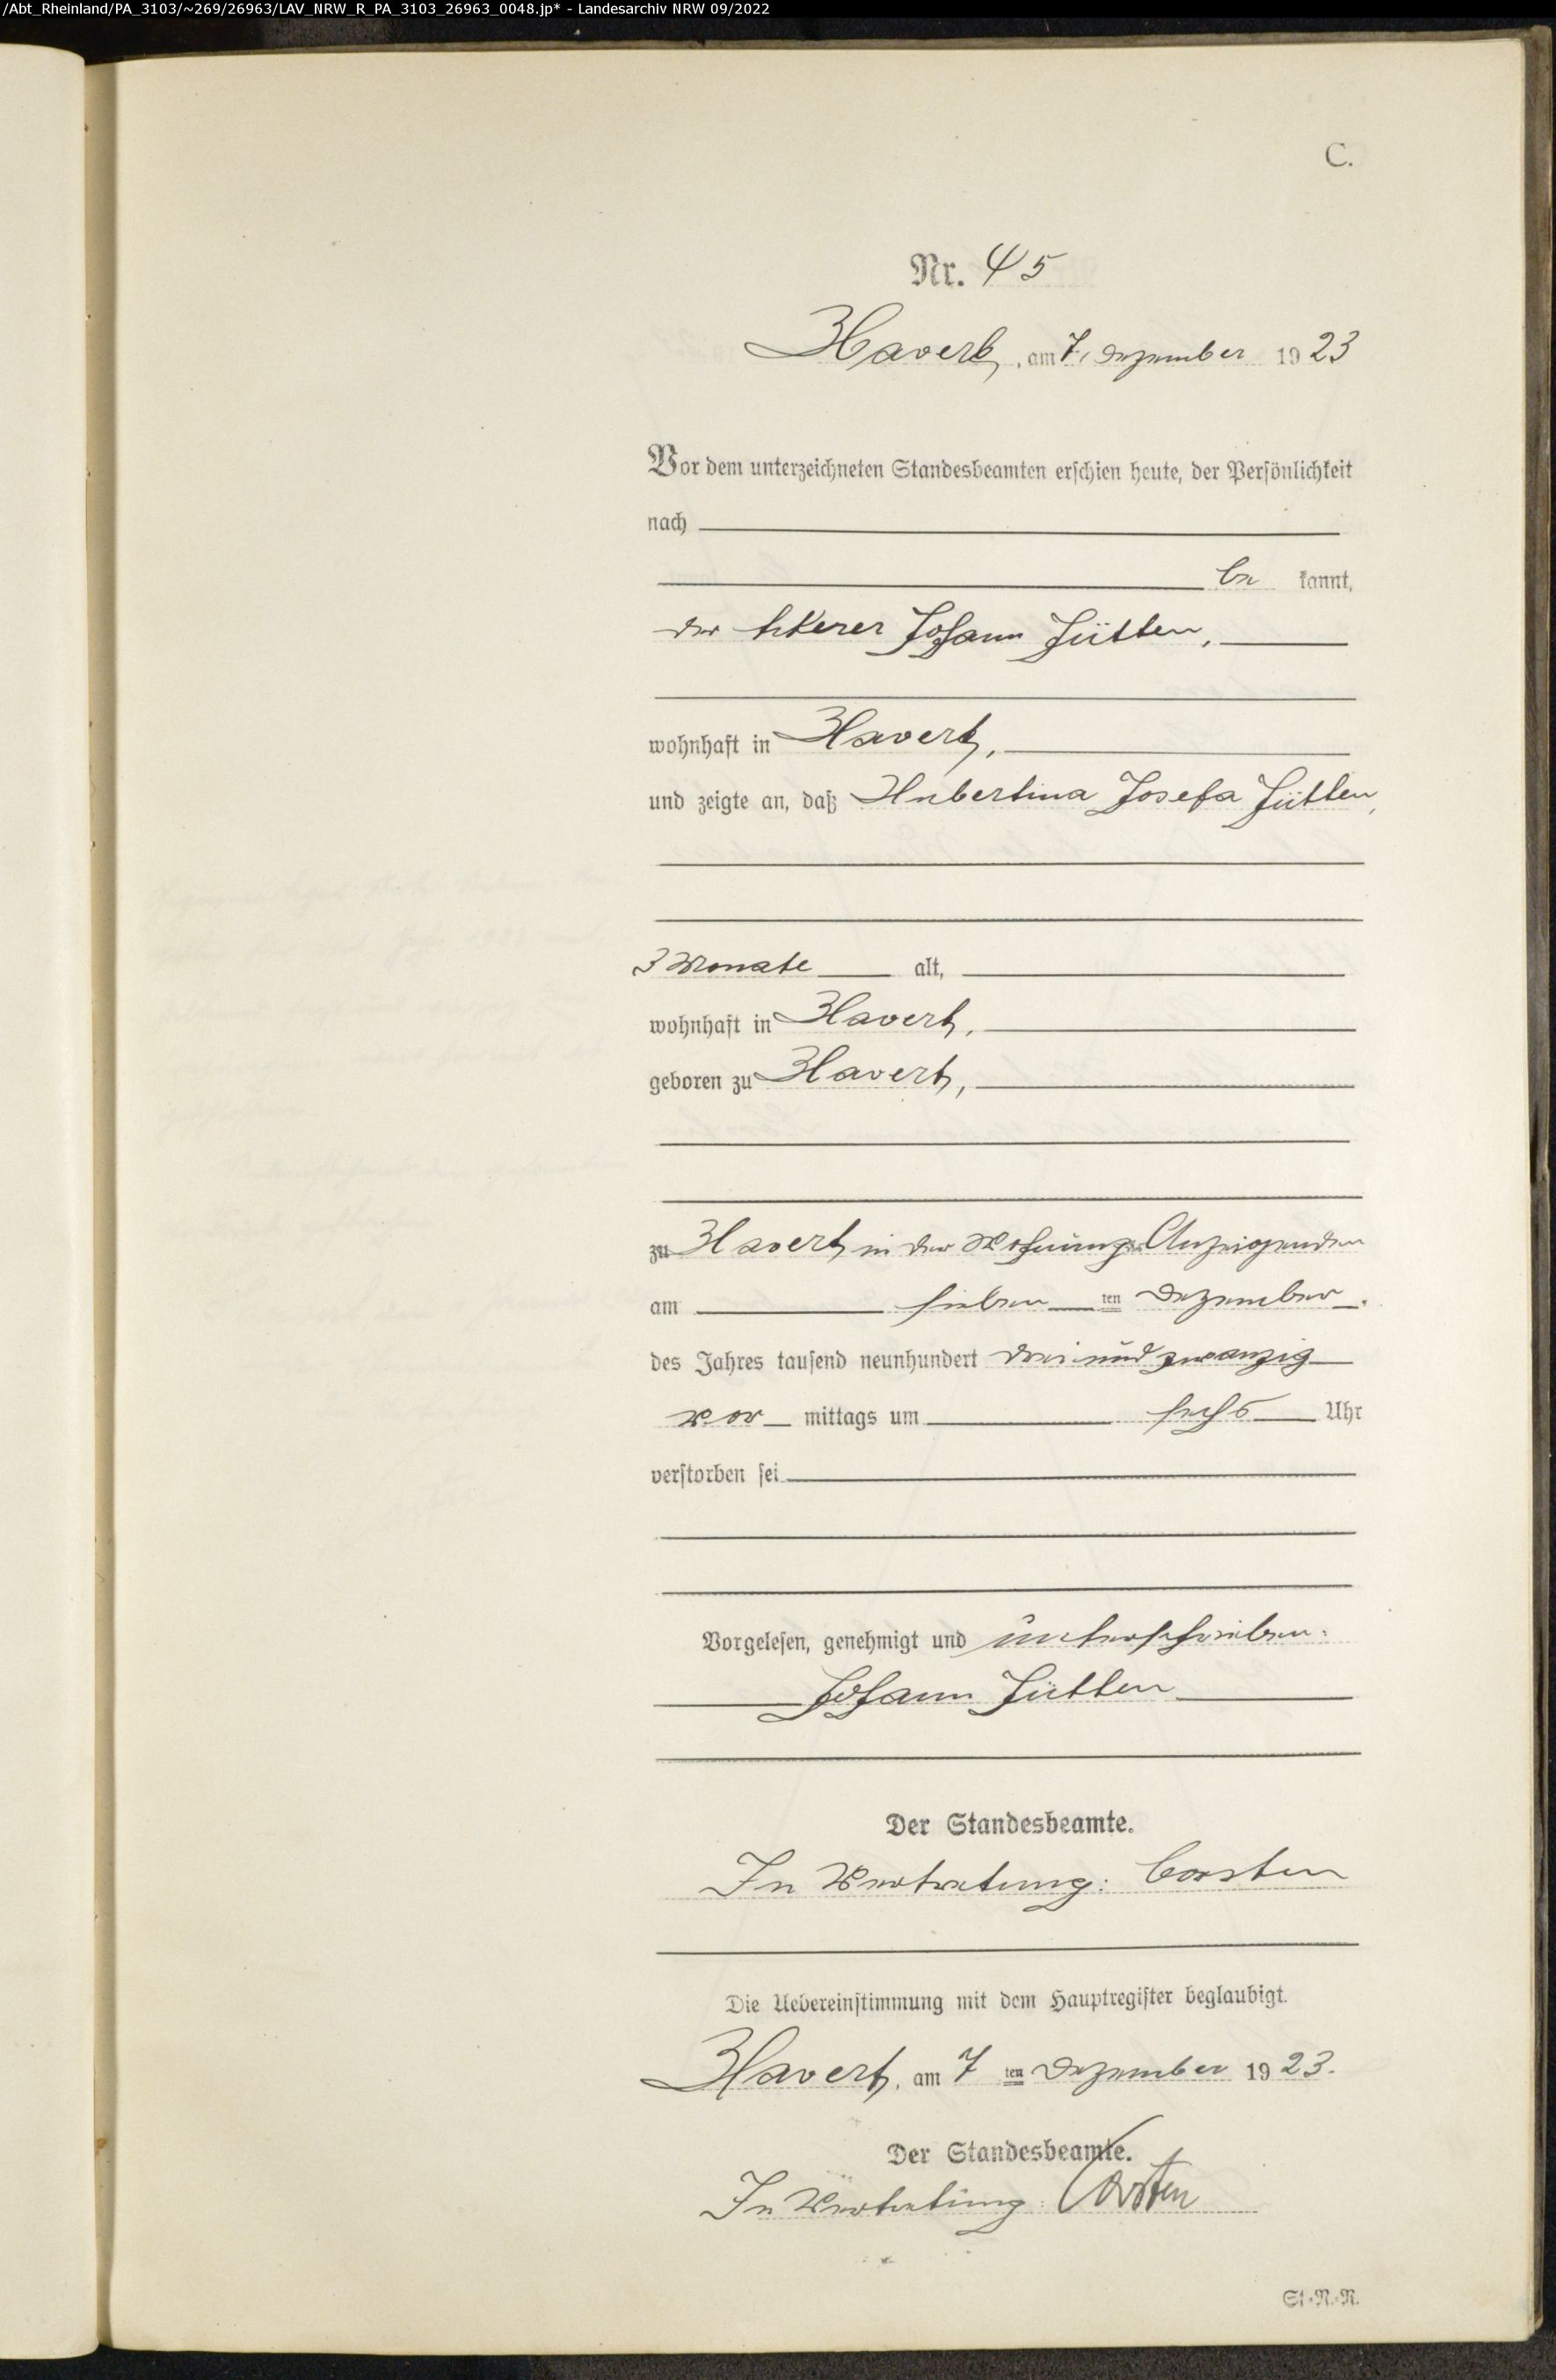 /Abt_Rheinland/PA_3103/~269/26963/LAV_NRW_R_PA_3103_26963_0048.jp* - Landesarchiv NRW 09/2022
C.
Nr. 45
Havert, am 7. Dezember 1923
Vor dem unterzeichneten Standesbeamten erschien heute, der Persönlichkeit
nach
be kannt,
der Ackerer Johann Jütten,
wohnhaft in Havert,
und zeigte an, daß Hubertina Josefa Jütten,
3 Monate alt,
wohnhaft in Havert,
geboren zu Havert,
zu Havert, in der Wohnung Anzeigenden
am sieben ten Dezember
des Jahres tausend neunhundert drei und zwanzig
vor mittags um sechs Uhr
verstorben sei
Vorgelesen, genehmigt und unterschrieben.
Johann Jütten
Der Standesbeamte.
In Vertretung: Corsten
Die Uebereinstimmung mit dem Hauptregister beglaubigt.
Havert, am 7 ten Dezember 1923.
Der Standesbeamte.
In Vertretung: Corsten
St.-R.-R.